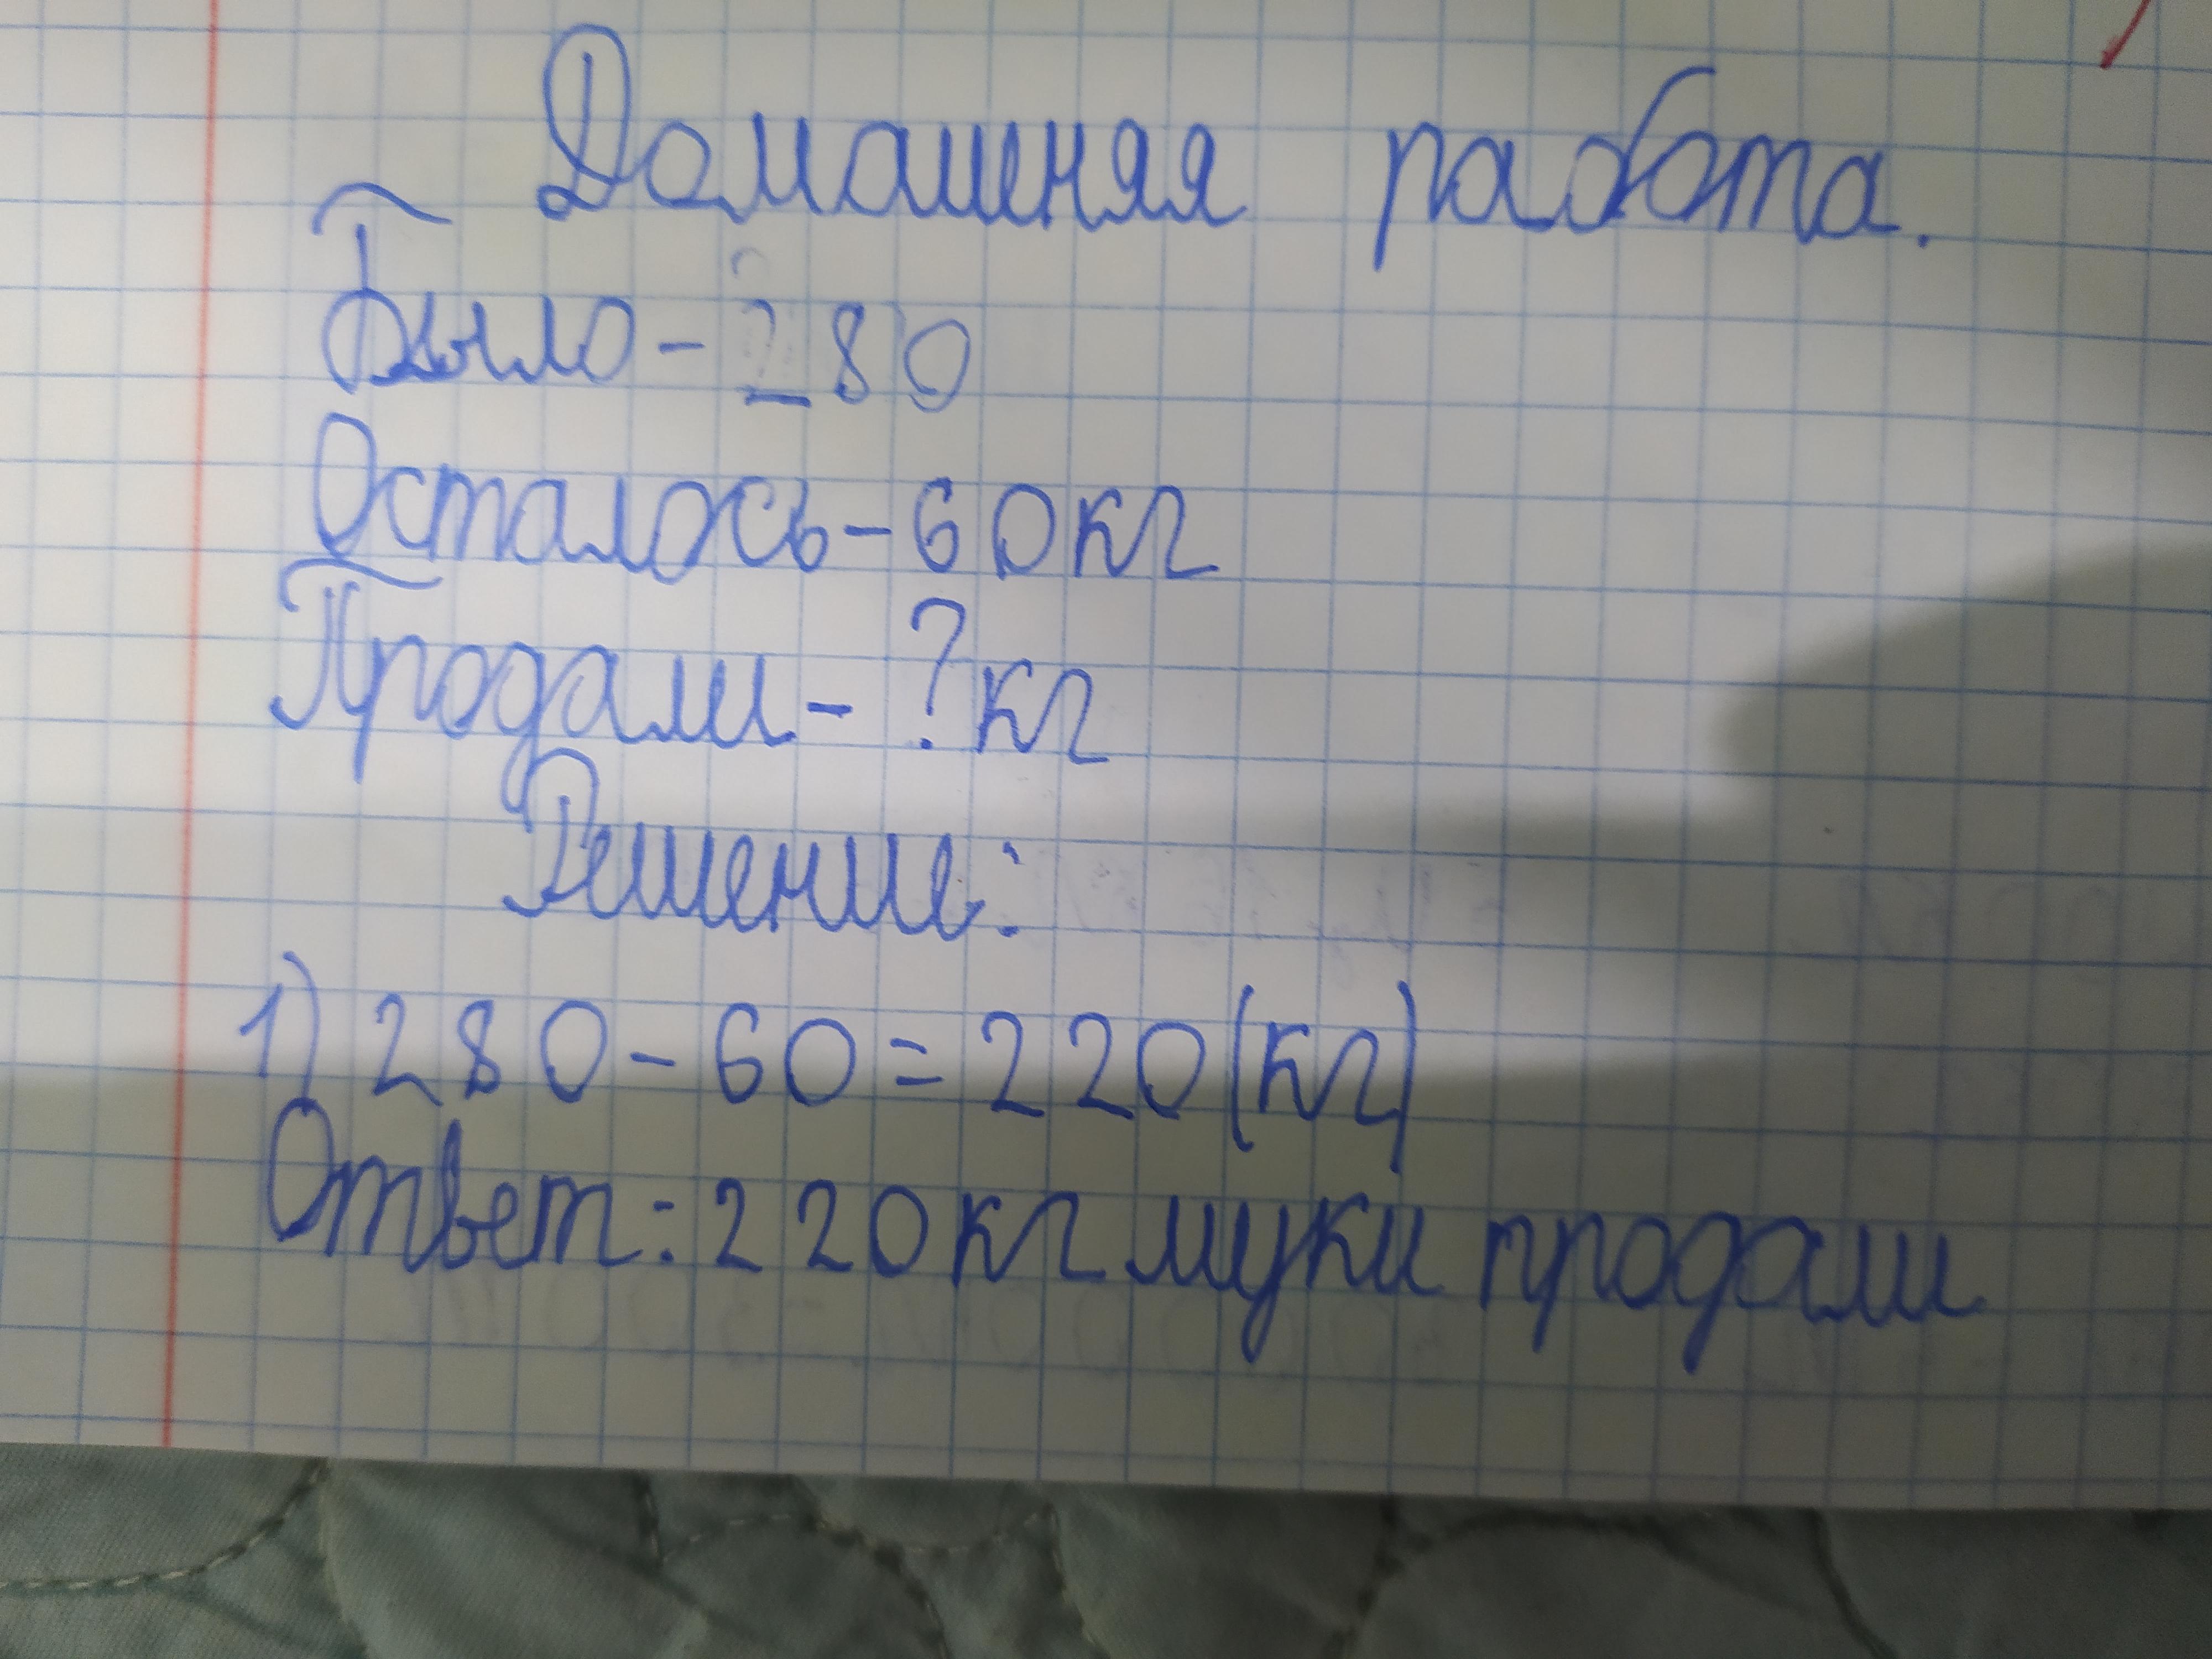 Домашняя работа.
Было - 280
Осталось - 60 кг
Продали - ? кг
Решение:
1) 280 - 60 = 220 (кг)
Ответ: 220 кг муки продали